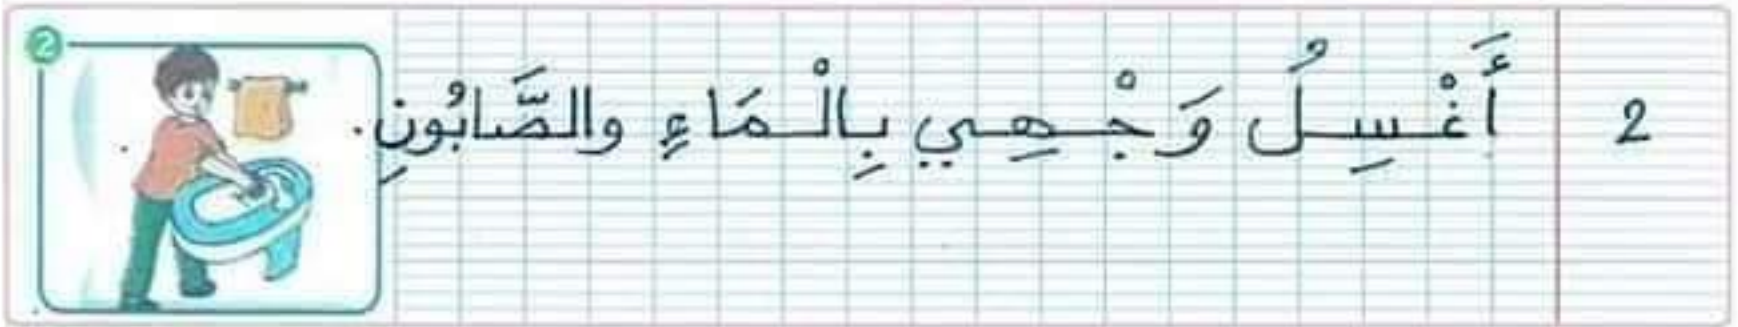 2 أَغْسِلُ وَجْهِي بِالْمَاءِ والصَّابُونِ.
2